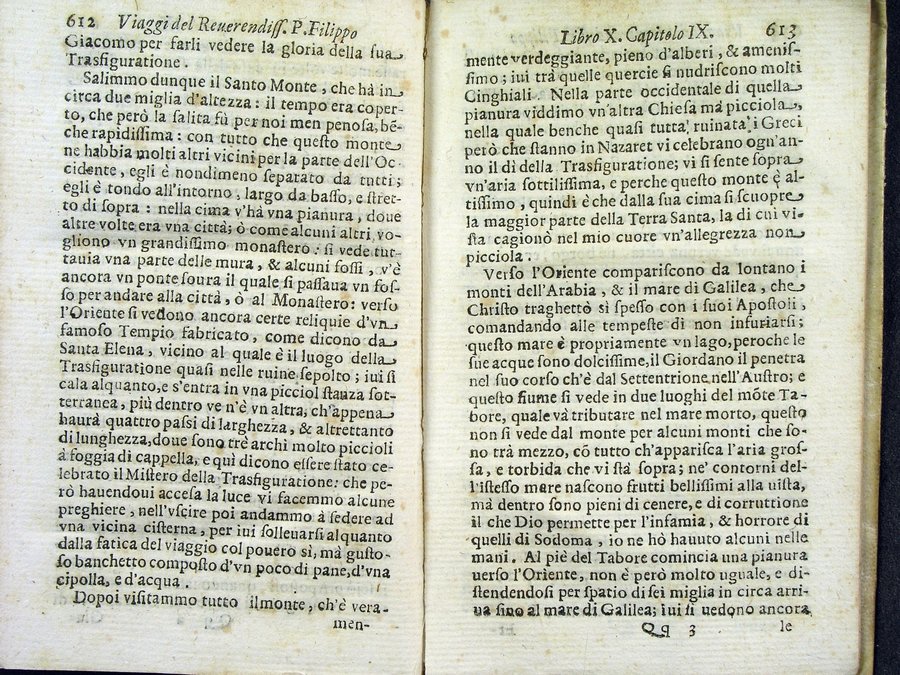 612 Viaggi del Reuerendiss. P. Filippo
Giacomo per farli vedere la gloria della sua
Trasfiguratione.
Salimmo dunque il Santo Monte, che hà in
circa due miglia d'altezza: il tempo era coper-
to, che però la salita fù per noi men penosa, bē-
che rapidissima: con tutto che questo monte
ne habbia molti altri vicini per la parte dell'Oc-
cidente, egli è nondimeno separato da tutti;
egli è tondo all'intorno, largo da basso, e stret-
to di sopra: nella cima v'hà vna pianura, doue
altre volte era vna città; ò come alcuni altri vo-
gliono vn grandissimo monastero: si vede tut-
tauia vna parte delle mura, & alcuni fossi, v'è
ancora vn ponte soura il quale si passaua vn fos-
so per andare alla città, ò al Monastero: verso
l'Oriente si vedono ancora certe reliquie d'vn
famoso Tempio fabricato, come dicono da
Santa Elena, vicino al quale è il luogo della
Trasfiguratione quasi nelle ruine sepolto; iui si
cala alquanto, e s'entra in vna picciol stanza sot-
terranea, più dentro ve n'è vn altra, ch'appena
haurà quattro passi di larghezza, & altrettanto
di lunghezza, doue sono trè archi molto piccioli
à foggia di cappella, e quì dicono essere stato ce-
lebrato il Mistero della Trasfiguratione: che pe-
rò hauendoui accesa la luce vi facemmo alcune
preghiere, nell'vscire poi andammo à sedere ad
vna vicina cisterna, per iui solleuarsi alquanto
dalla fatica del viaggio col pouero sì, mà gusto-
so banchetto composto d'vn poco di pane, d'vna
cipolla, e d'acqua.
Dopoi visitammo tutto ilmonte, ch'è vera-
men-
Libro X. Capitolo IX. 613
mente verdeggiante, pieno d'alberi, & amenis-
simo; iui trà quelle quercie si nudriscono molti
Cinghiali. Nella parte occidentale di quella
pianura viddimo vn'altra Chiesa mà picciola,
nella quale benche quasi tutta ruinata i Greci
però che stanno in Nazaret vi celebrano ogn'an-
no il dì della Trasfiguratione; vi si sente sopra
vn'aria sottilissima, e perche questo monte è al-
tissimo, quindi è che dalla sua cima si scuopre
la maggior parte della Terra Santa, la di cui vi-
sta cagionò nel mio cuore vn'allegrezza non
picciola.
Verso l'Oriente compariscono da lontano i
monti dell'Arabia, & il mare di Galilea, che
Christo traghettò sì spesso con i suoi Apostoli,
comandando alle tempeste di non infuriarsi;
questo mare è propriamente vn lago, peroche le
sue acque sono dolcissime, il Giordano il penetra
nel suo corso ch'è dal Settentrione nell'Austro; e
questo fiume si vede in due luoghi del mōte Ta-
bore, quale và tributare nel mare morto, questo
non si vede dal monte per alcuni monti che so-
no trà mezzo, cō tutto ch'apparisca l'aria gros-
sa, e torbida che vi stà sopra; ne' contorni del-
l'istesso mare nascono frutti bellissimi alla uista,
mà dentro sono pieni di cenere, e di corruttione
il che Dio permette per l'infamia, & horrore di
quelli di Sodoma, io ne hò hauuto alcuni nelle
mani. Al piè del Tabore comincia una pianura
uerso l'Oriente, non è però molto uguale, e di-
stendendosi per spatio di sei miglia in circa arri-
ua sino al mare di Galilea; iui si uedono ancora
Qq 3 le